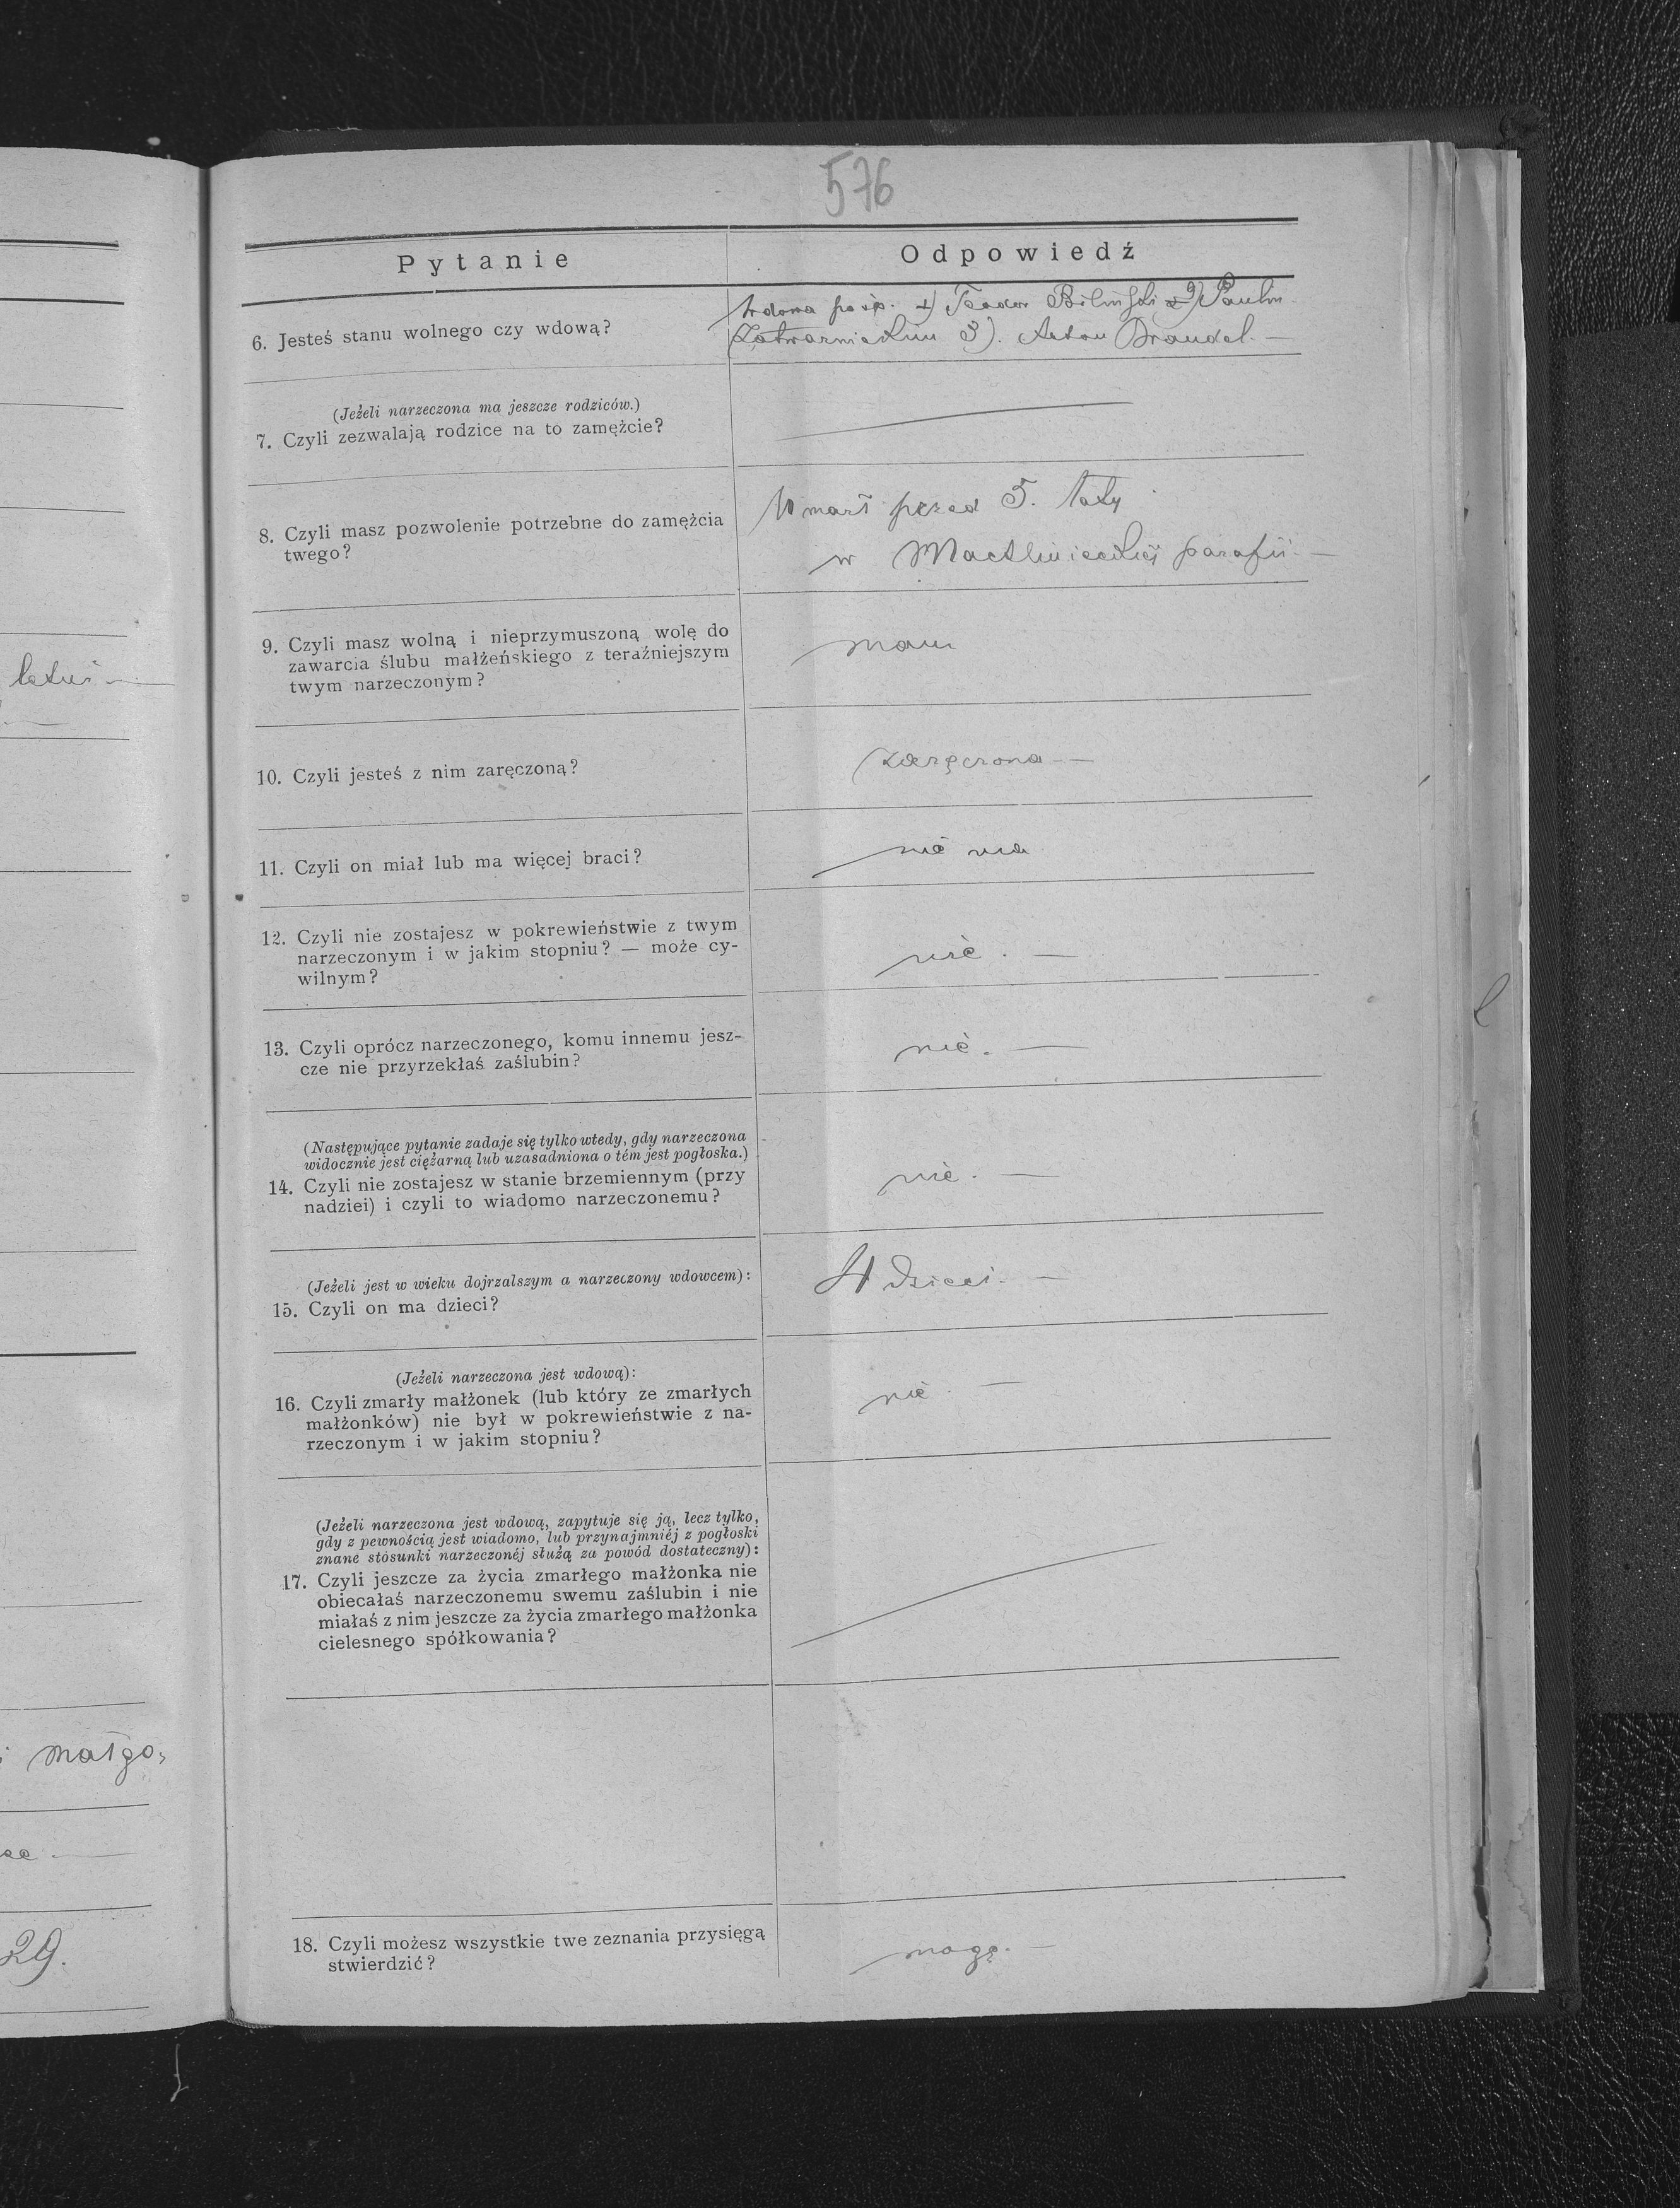 576
Pytanie
Odpowiedź
6. Jesteś stanu wolnego czy wdową?
Wdowa po śp. 1) Teodor Biliński 2) Paulin
3). Anton Brandel. —
(Jeżeli narzeczona ma jeszcze rodziców.)
7. Czyli zezwalają rodzice na to zamężcie?
8. Czyli masz pozwolenie potrzebne do zamężcia
twego?
Umarł przed 5. laty
w parafii. —
9. Czyli masz wolną i nieprzymuszoną wolę do
zawarcia ślubu małżeńskiego z teraźniejszym
twym narzeczonym?
mam
10. Czyli jesteś z nim zaręczoną?
zaręczona —
11. Czyli on miał lub ma więcej braci?
nié ma
12. Czyli nie zostajesz w pokrewieństwie z twym
narzeczonym i w jakim stopniu? — może cy-
wilnym?
nié. —
13. Czyli oprócz narzeczonego, komu innemu jesz-
cze nie przyrzekłaś zaślubin?
nié. —
(Następujące pytanie zadaje się tylko wtedy, gdy narzeczona
widocznie jest ciężarną lub uzasadniona o tém jest pogłoska.)
14. Czyli nie zostajesz w stanie brzemiennym (przy
nadziei) i czyli to wiadomo narzeczonemu?
nié. —
(Jeżeli jest w wieku dojrzalszym a narzeczony wdowcem):
15. Czyli on ma dzieci?
4 dzieci. —
(Jeżeli narzeczona jest wdową):
16. Czyli zmarły małżonek (lub który ze zmarłych
małżonków) nie był w pokrewieństwie z na-
rzeczonym i w jakim stopniu?
nié. —
(Jeżeli narzeczona jest wdową, zapytuje się ją, lecz tylko,
gdy z pewnością jest wiadomo, lub przynajmniéj z pogłoski
znane stosunki narzeczonéj służą za powód dostateczny):
17. Czyli jeszcze za życia zmarłego małżonka nie
obiecałaś narzeczonemu swemu zaślubin i nie
miałaś z nim jeszcze za życia zmarłego małżonka
cielesnego spółkowania?
18. Czyli możesz wszystkie twe zeznania przysięgą
stwierdzić?
mogę. —
i małgo,
29.